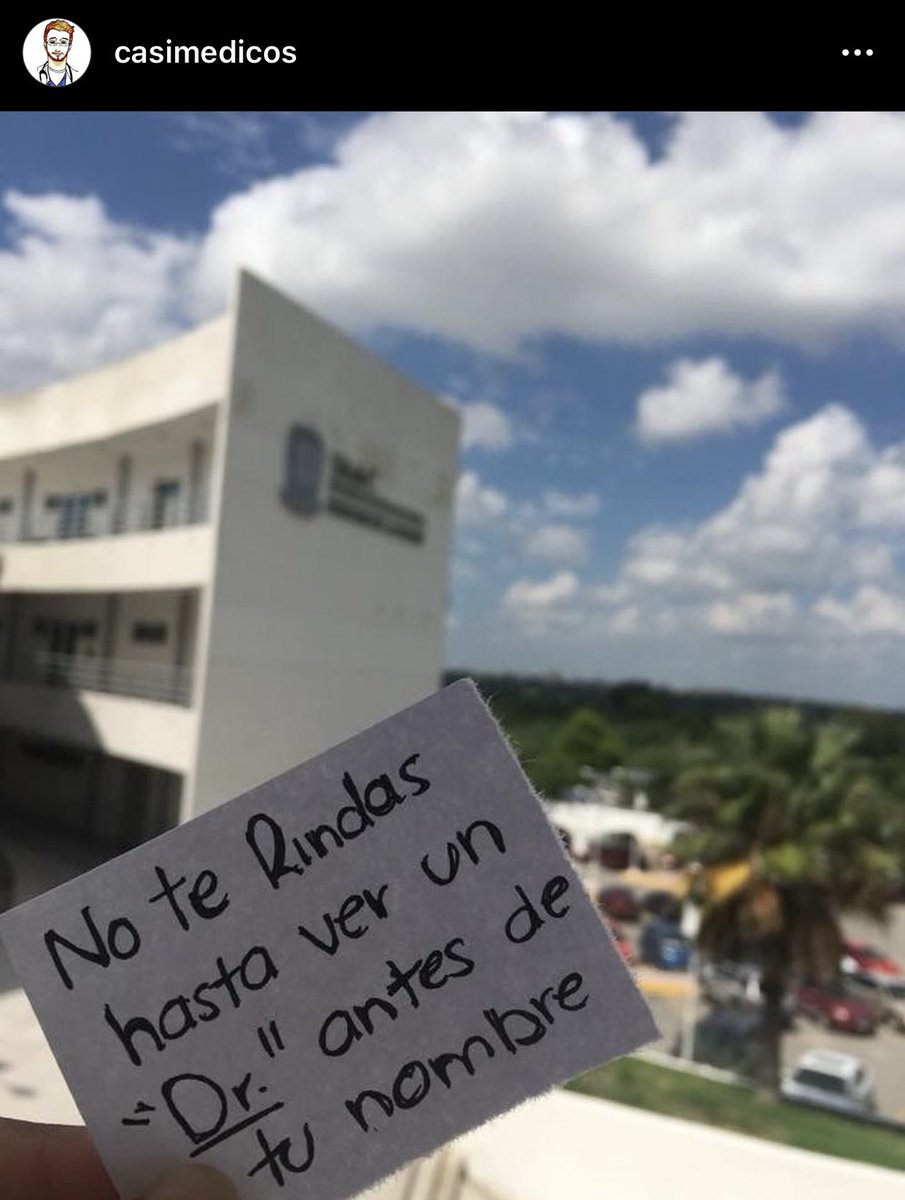 casimedicos
No te Rindas
hasta ver un
"Dr." antes de
tu nombre